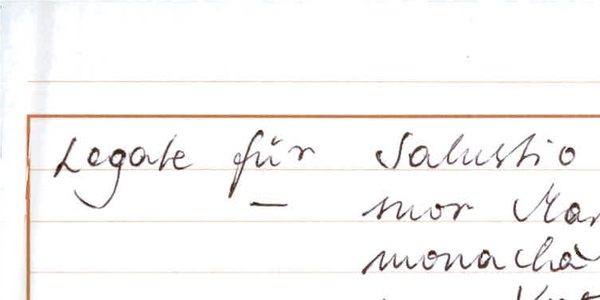 Legate für Salustio
— suor Mar
monacha